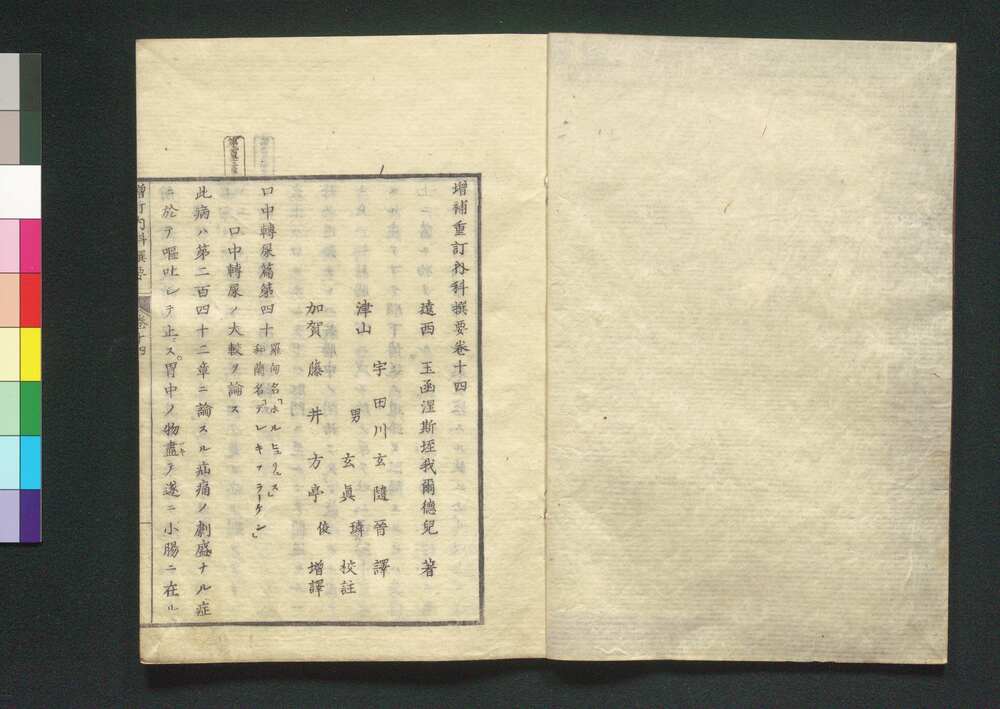 增補重訂内科撰要卷十四
遠西 玉函涅斯垤我爾德兒 著
宇田川玄隨晉 譯
津山 男 玄眞璘 校註
加賀 藤井方亭俊 增譯
口中轉屎篇第四十 羅甸名「ホルヒュリュス」
和蘭名「デレキファラーケン」
口中轉屎ノ大較ヲ論ス
此病ハ第二百四十二章ニ論スル疝痛ノ劇盛ナル症
ニ於テ嘔吐シテ止ス。胃中ノ物盡テ遂ニ小腸ニ在ル
增訂内科撰要
卷十四